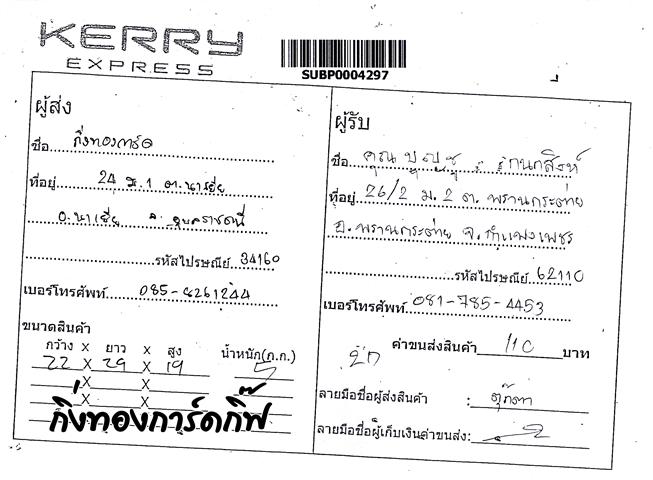 KERRY
EXPRESS
SUBP0004297
ผู้ส่ง
ชื่อ กิ่งทองการ์ด
ที่อยู่ 24 ม.1 ต.นาเยีย
อ.นาเยีย จ.อุบลราชธานี
รหัสไปรษณีย์ 34160
เบอร์โทรศัพท์ 085-4261244
ขนาดสินค้า
กว้าง X ยาว X สูง น้ำหนัก(ก.ก.)
22 X 29 X 19 5
X X
X X
กิ่งทองการ์ดกิ๊ฟ
ผู้รับ
ชื่อ คุณ บุญชู
ที่อยู่ 26/2 ม.2 ต.พรานกระต่าย
อ.พรานกระต่าย จ.กำแพงเพชร
รหัสไปรษณีย์ 62110
เบอร์โทรศัพท์ 081-785-4453
ค่าขนส่งสินค้า 110 บาท
ลายมือชื่อผู้ส่งสินค้า : ตุ๊กตา
ลายมือชื่อผู้เก็บเงินค่าขนส่ง: